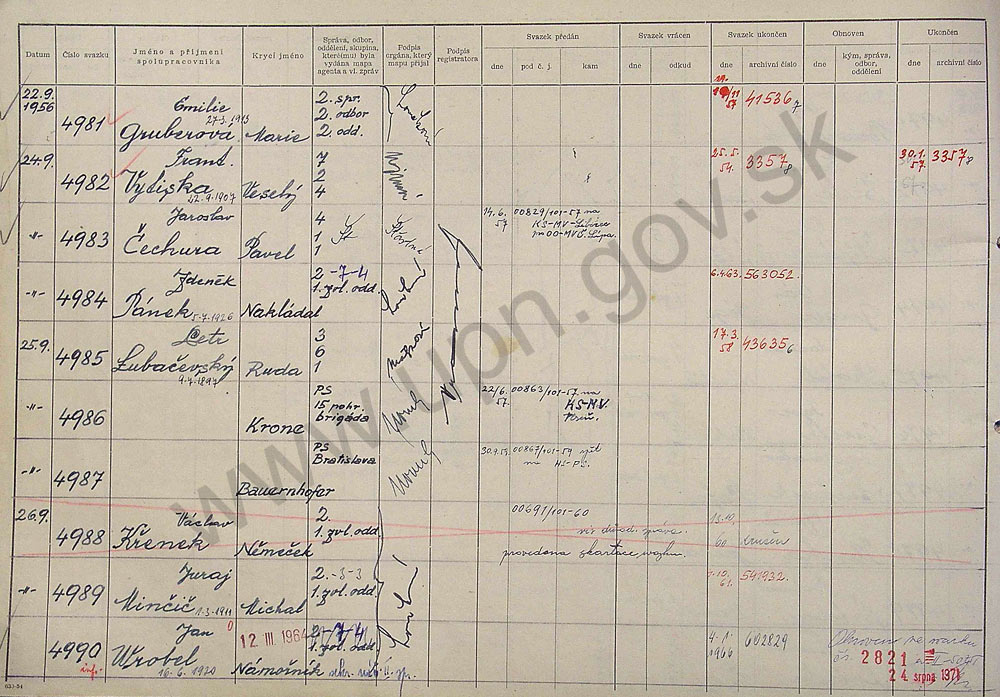 Datum
Číslo svazku
Jméno a příjmení
spolupracovníka
Krycí jméno
Správa, odbor,
oddělení, skupina,
které(mu) byla
vydána mapa
agenta a vl. zpráv
Podpis
orgána, který
mapu přijal
Podpis
registratora
Svazek předán
dne
pod č. j.
kam
Svazek vrácen
dne
odkud
Svazek ukončen
dne
archivní číslo
Obnoven
dne
kým, správa,
odbor,
oddělení
Ukončen
dne
archivní číslo
22.9.
1956
4981
Emilie
27.3.1913
Gruberova
Marie
2. spr.
2. odbor
2. odd.
57
41536 7
24.9.
4982
Frant.
Vytiska
22.9.1907
Veselý
7
2
4
25.5.
3357 8
30.1.
57.
3357 8
-"-
4983
Jaroslav
Čechura
Pavel
4
1
1
Šťastný
14.6.
57
00829/101-57 na
KS-MV-Liberec
pro OO-MV Č. Lípa.
-"-
4984
Zdeněk
Pánek 5.7.1926
Nakládal
2-7-4
1. zvl. odd.
6.4.63. 563052.
25.9.
4985
Petr
Lubačevský
9.7.1897
Ruda
3
6
1
17.3.
58
43635 6
-"-
4986
Krone
PS
15 pohr.
brigáda
22/6.
57.
00863/101-57 na
KS-M.V.
-"-
4987
Bauernhofer
PS
Bratislava
30.9.59
00867/101-59 zpět
na HS-PS.
26.9.
4988
Václav
Křenek
Němeček
2.
1. zvl. odd.
00691/101-60
provedena skartace svazku.
13.10.
60
-"-
4989
Juraj
Minčič 1.3.1911
Michal
2.-3-3
1. zvl. odd.
61.
541932.
4990
Jan
Wrobel
16.6.1920
12 III 1964
Námořník
2-7-4
1. zvl. odd.
4.1.
1966
602829
Obnoven
čs. 2821
24 srpna 1971
630-54
www.upn.gov.sk